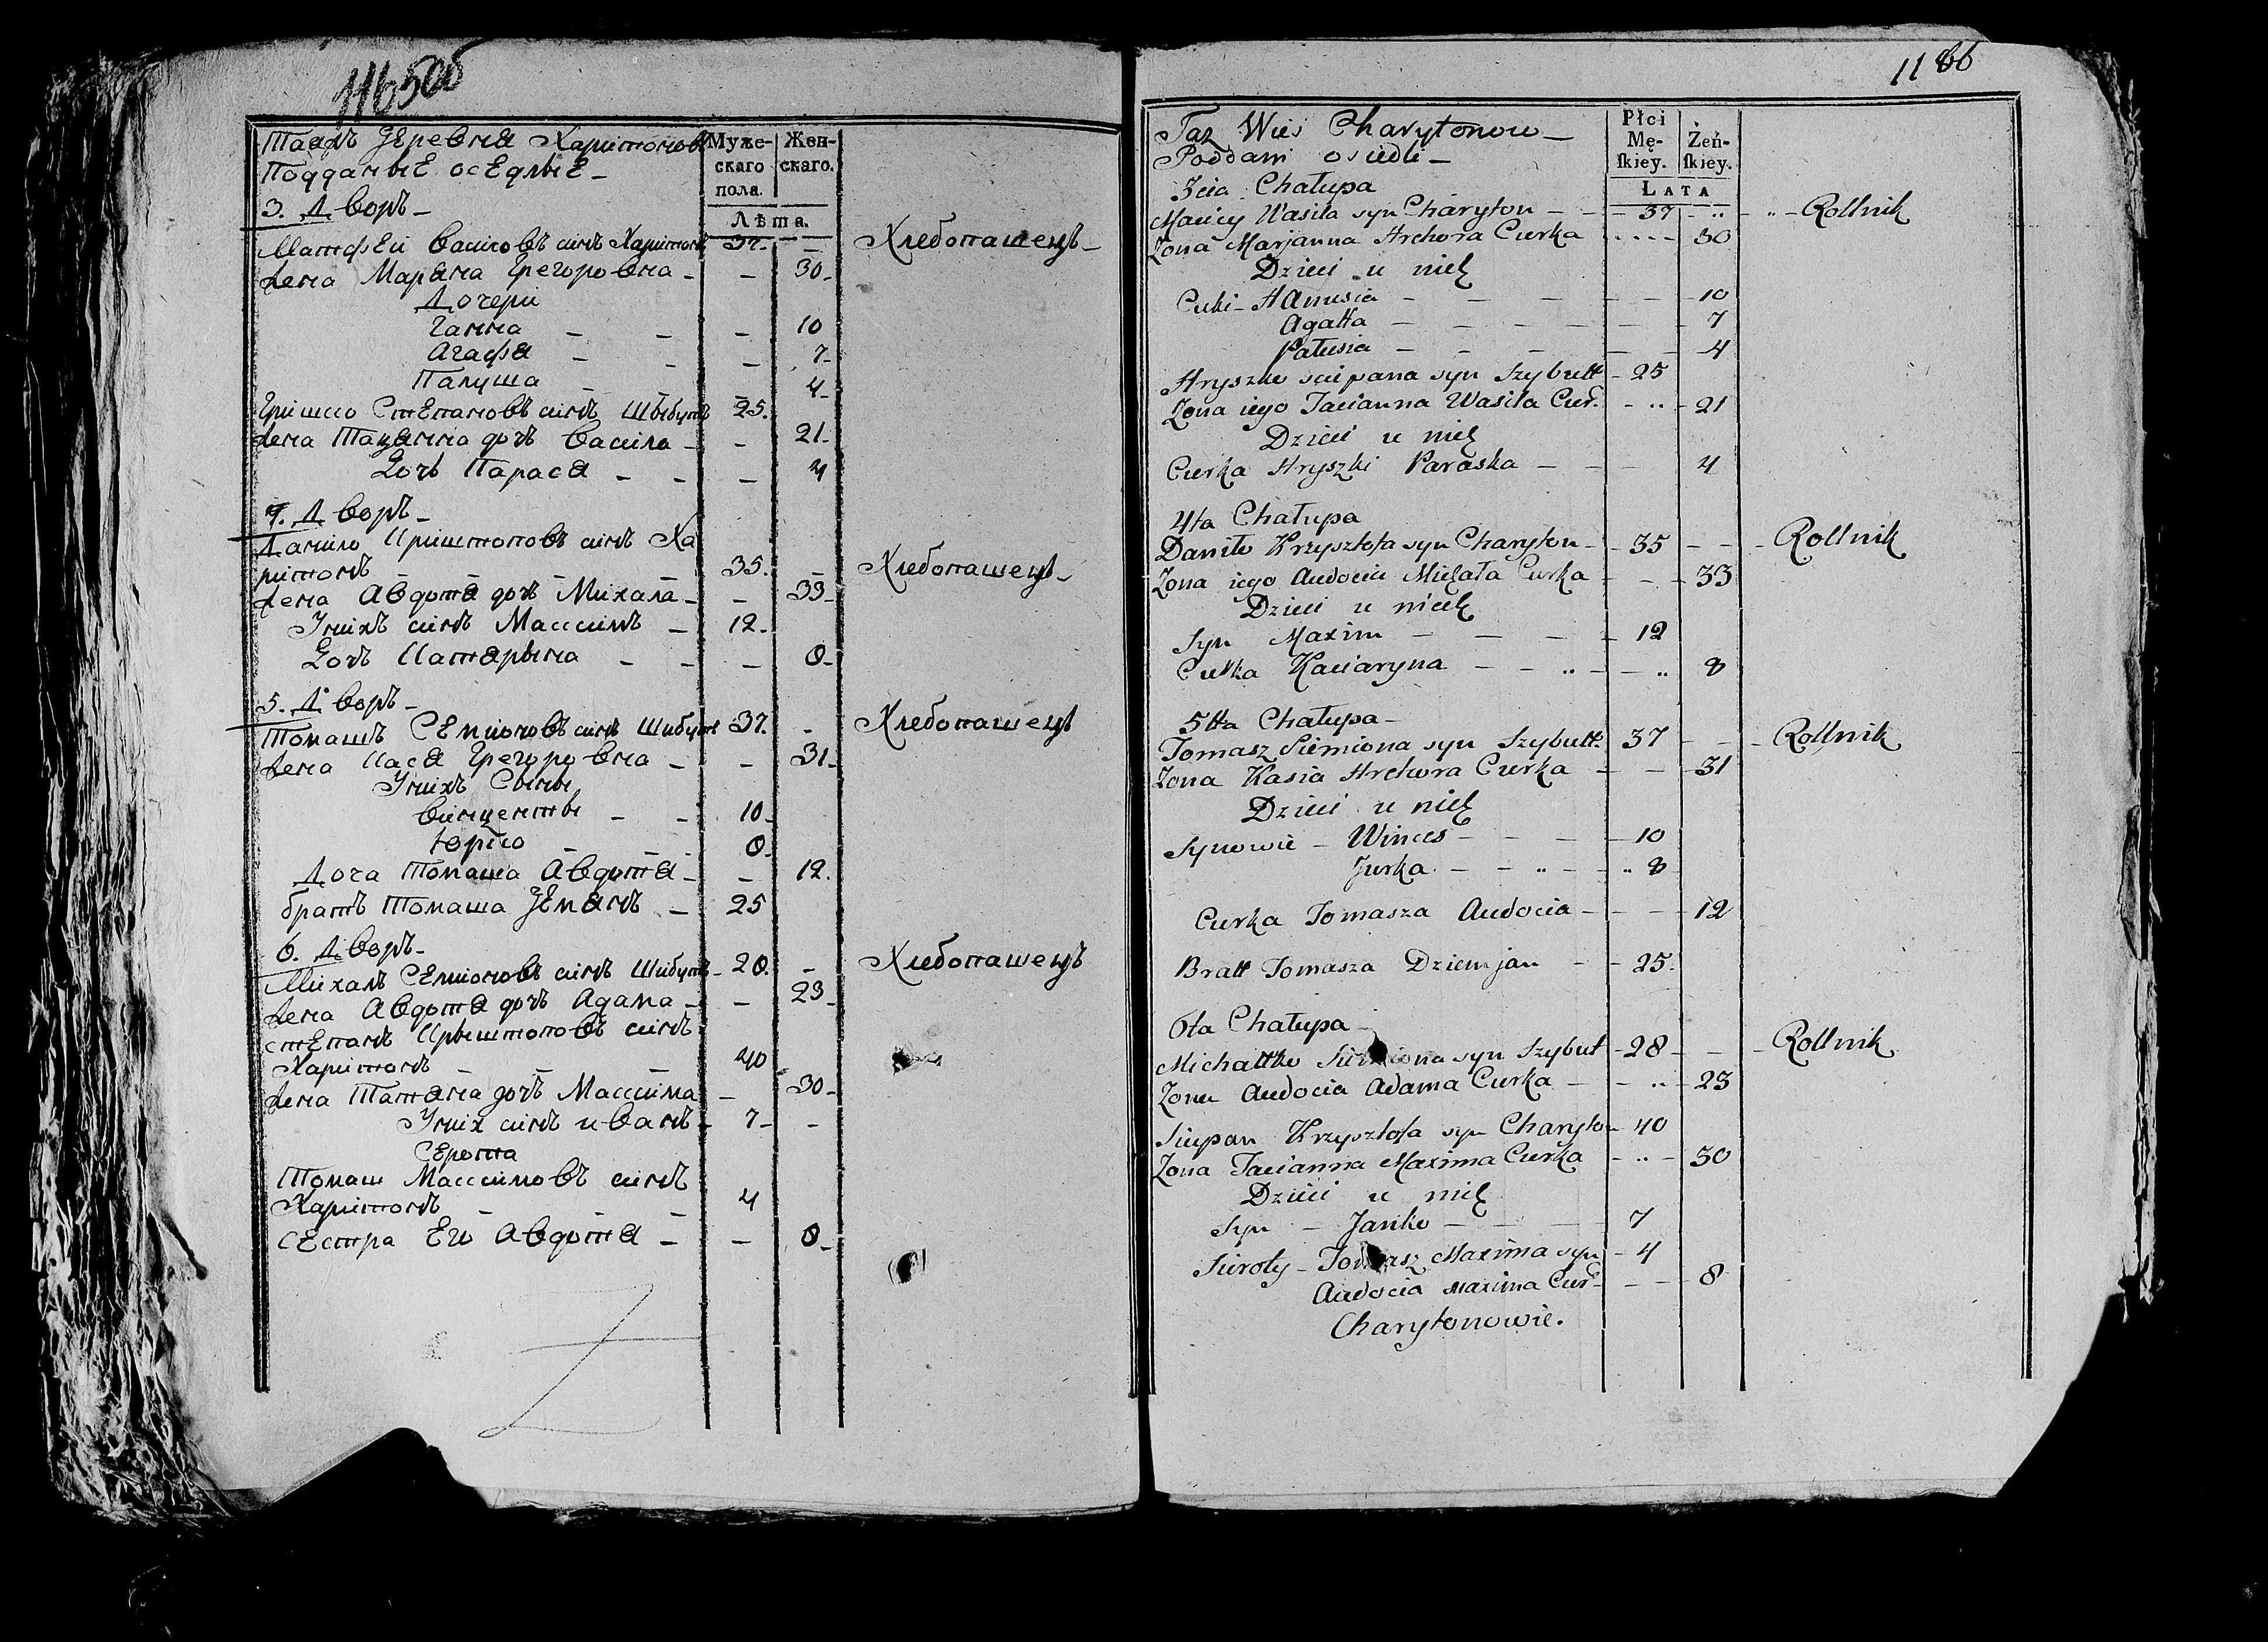 1165об
Таяжъ Деревня Харитоновъ
Подданые оседлые
Мужескаго пола.
Женскаго.
Лѣта.
3. Дворъ
Матфей Василовъ синъ Харитонъ 37. – Хлебопашецъ
жена Маряна Грегоровна – 30
Дочери
Ганна – 10
Агафя – 7
Палуша – 4
Гришко Степановъ синъ Шыбутъ 25.
жена Тацянна дочъ Василя – 21
Дочъ Парася – 4
4. Дворъ
Данило Криштоповъ синъ Ха
ритонъ 35. – Хлебопашецъ
жена Авдотя дочъ Михала – 33
Унихъ синъ Максимъ – 12.
Дочъ Катярына – 8
5. Дворъ
Томашъ Семионовъ синъ Шибутъ 37. – Хлебопашецъ
жена Кася Грегоровна – 31
Унихъ Сыны
Винценты – 10
Юрко – 8
Доча Томаша Авдотя – 12.
братъ Томаша Демянъ – 25
6. Дворъ
Михалъ Семионовъ синъ Шибутъ 28. – Хлебопашецъ
жена Авдотя дочъ Адама – 23
степанъ Крыштоповъ синъ
Харитонъ 40
жена Татяна дочъ Максима – 30
Уних синъ иванъ 7 –
Серота
Томаш Максимовъ синъ
Харитонъ 4
сестра Его Авдотя – 8
1166
Taz Wies Charytonow
Poddani osiedli
Płci Mę-
skiey.
Żeń-
skiey.
LATA
3cia Chałupa
Maciey Wasila syn Charyton – 37 – Rollnik
Zona Marjanna Hrehora Curka – 30
Dzieci u nich
Curki – Hanusia – 10
Agatta – 7
Pałusia – 4
Hryszko sciepana syn Szybutt – 25
Zona iego Tacianna Wasila Cur. – 21
Dzieci u nich
Curka Hryszki Paraska – 4
4ta Chałupa
Daniło Krzysztofa syn Charyton – 35 – Rollnik
Zona iego Audocia Michała Curka – 33
Dzieci u nich
Syn Maxim – 12
Curka Kaciaryna – 8
5tta Chałupa
Tomasz Siemiona syn Szybutt. 37 – Rollnik
Zona Kasia Hrehora Curka – 31
Dzieci u nich
Synowie – Winces – 10
Jurka – 8
Curka Tomasza Audocia – 12
Bratt Tomasza Dziemjan – 25.
6ta Chałupa
Michałtko Siemiona syn Szybut – 28 – Rollnik
Zona Audocia Adama Curka – 23
Sciepan Krzysztofa syn Charyton 40
Zona Tacianna Maxima Curka – 30
Dzieci u nich
Syn – Janko – 7
Sieroty – Tomasz Maxima syn – 4
Audocia Maxima Cur – 8
Charytonowie.